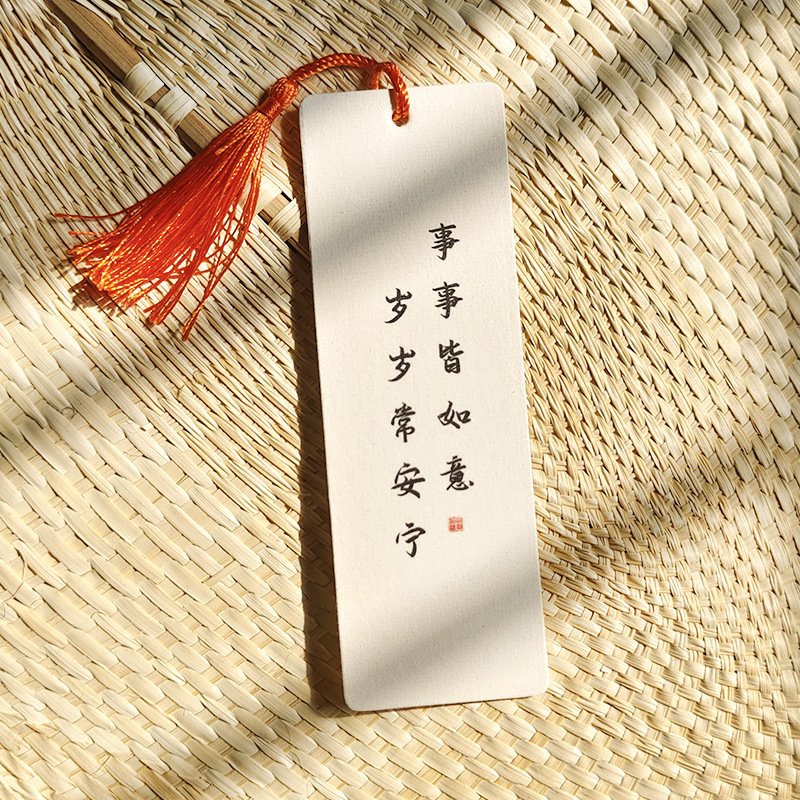 事事皆如意
岁岁常安宁